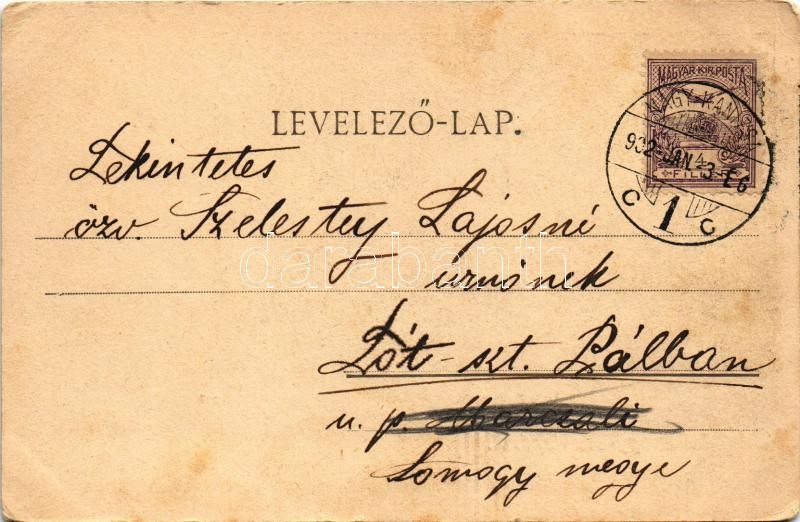 MAGYAR KIR. POSTA
NAGY-KANIZSA
FILLÉR
932 JAN. 3 E6
C 1 C
LEVELEZŐ-LAP.
Tekintetes
özv. Szelestey Lajosné
urnőnek
Tót-szt. Pálban
u. p. Marcali
Somogy megye
darabanth